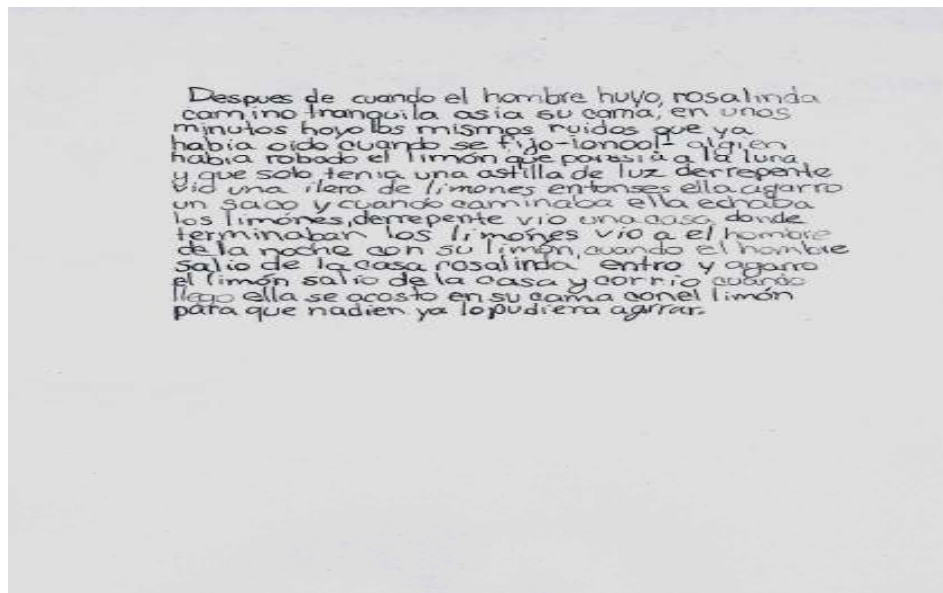 Despues de cuando el hombre huyo, rosalinda
camino tranquila asia su cama, en unos
minutos hoyo los mismos ruidos que ya
había oido cuando se fijo-ionooi- algien
había robado el limón que paresia a la luna
y que solo tenia una astilla de luz derrepente
vio una ilera de limones entonses ella agarro
un saco y cuando caminaba ella echaba
los limónes, derrepente vio una casa donde
terminaban los limones vio a el hombre
de la noche con su limón, cuando el hombre
salio de la casa rosalinda entro y agarro
el limón salio de la casa y corrio cuando
llego ella se acosto en su cama conel limón
para que nadien ya lo pudiera agrrar.